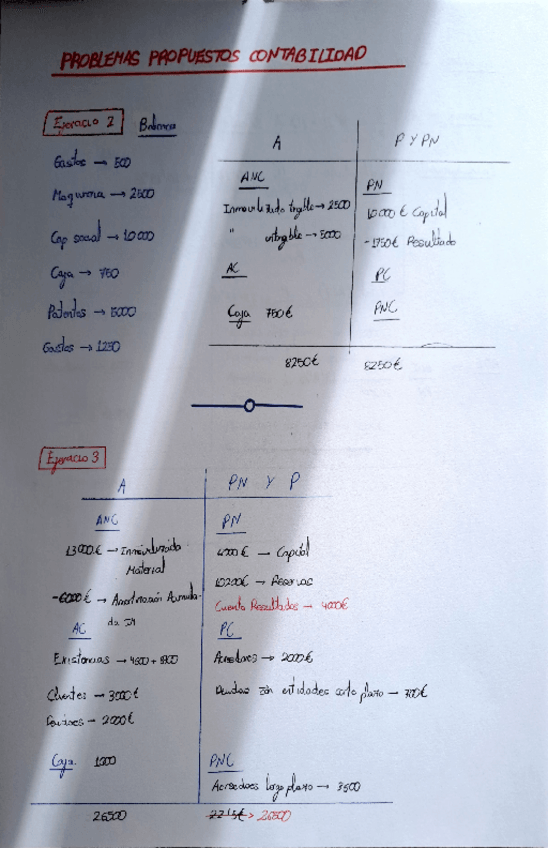 PROBLEMAS PROPUESTOS CONTABILIDAD
Ejercicio 2 Balance
Gastos → 500
Maquinaria → 2500
Cap social → 10000
Caja → 750
Patentes → 5000
Gastos → 1250
A P Y PN
ANC
Inmovilizado tngible → 2500
" intngible → 5000
AC
Caja 750 €
PN
10000 € Capital
-1750 € Resultado
PC
PNC
8250 € 8250 €
Ejercicio 3
A PN Y P
ANC
13000 € → Inmovilizado
Material
-6000 € → Amortización Acumula-
da
AC
Existencias →
Clientes → 3000 €
→ 2000 €
Caja
PN
→ Capital
10200 € → Reservas
Cuenta Resultados → 4000 €
PC
Acreedores → 2000 €
Deudas con entidades corto plazo →
PNC
Acreedores largo plazo → 3500
26500 > 26500